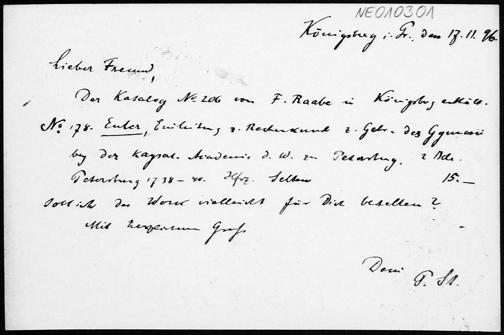 NE010301
Königsberg i. Pr., den 17.11.96
Lieber Freund,
Der Katalog No 206 von F. Raabe in Königsberg enthält
No 178. Euler, Einleitung z. Rechenkunst z. Gebr. des Gymnasii
bey der Kayserl. Academie d. W. zu Petersburg. 2 Bde.
Petersburg 1738–40. Hfrz. Selten 15.—
Soll ich das Werk vielleicht für Dich bestellen?
Mit herzlichem Gruß
Dein
P. St.